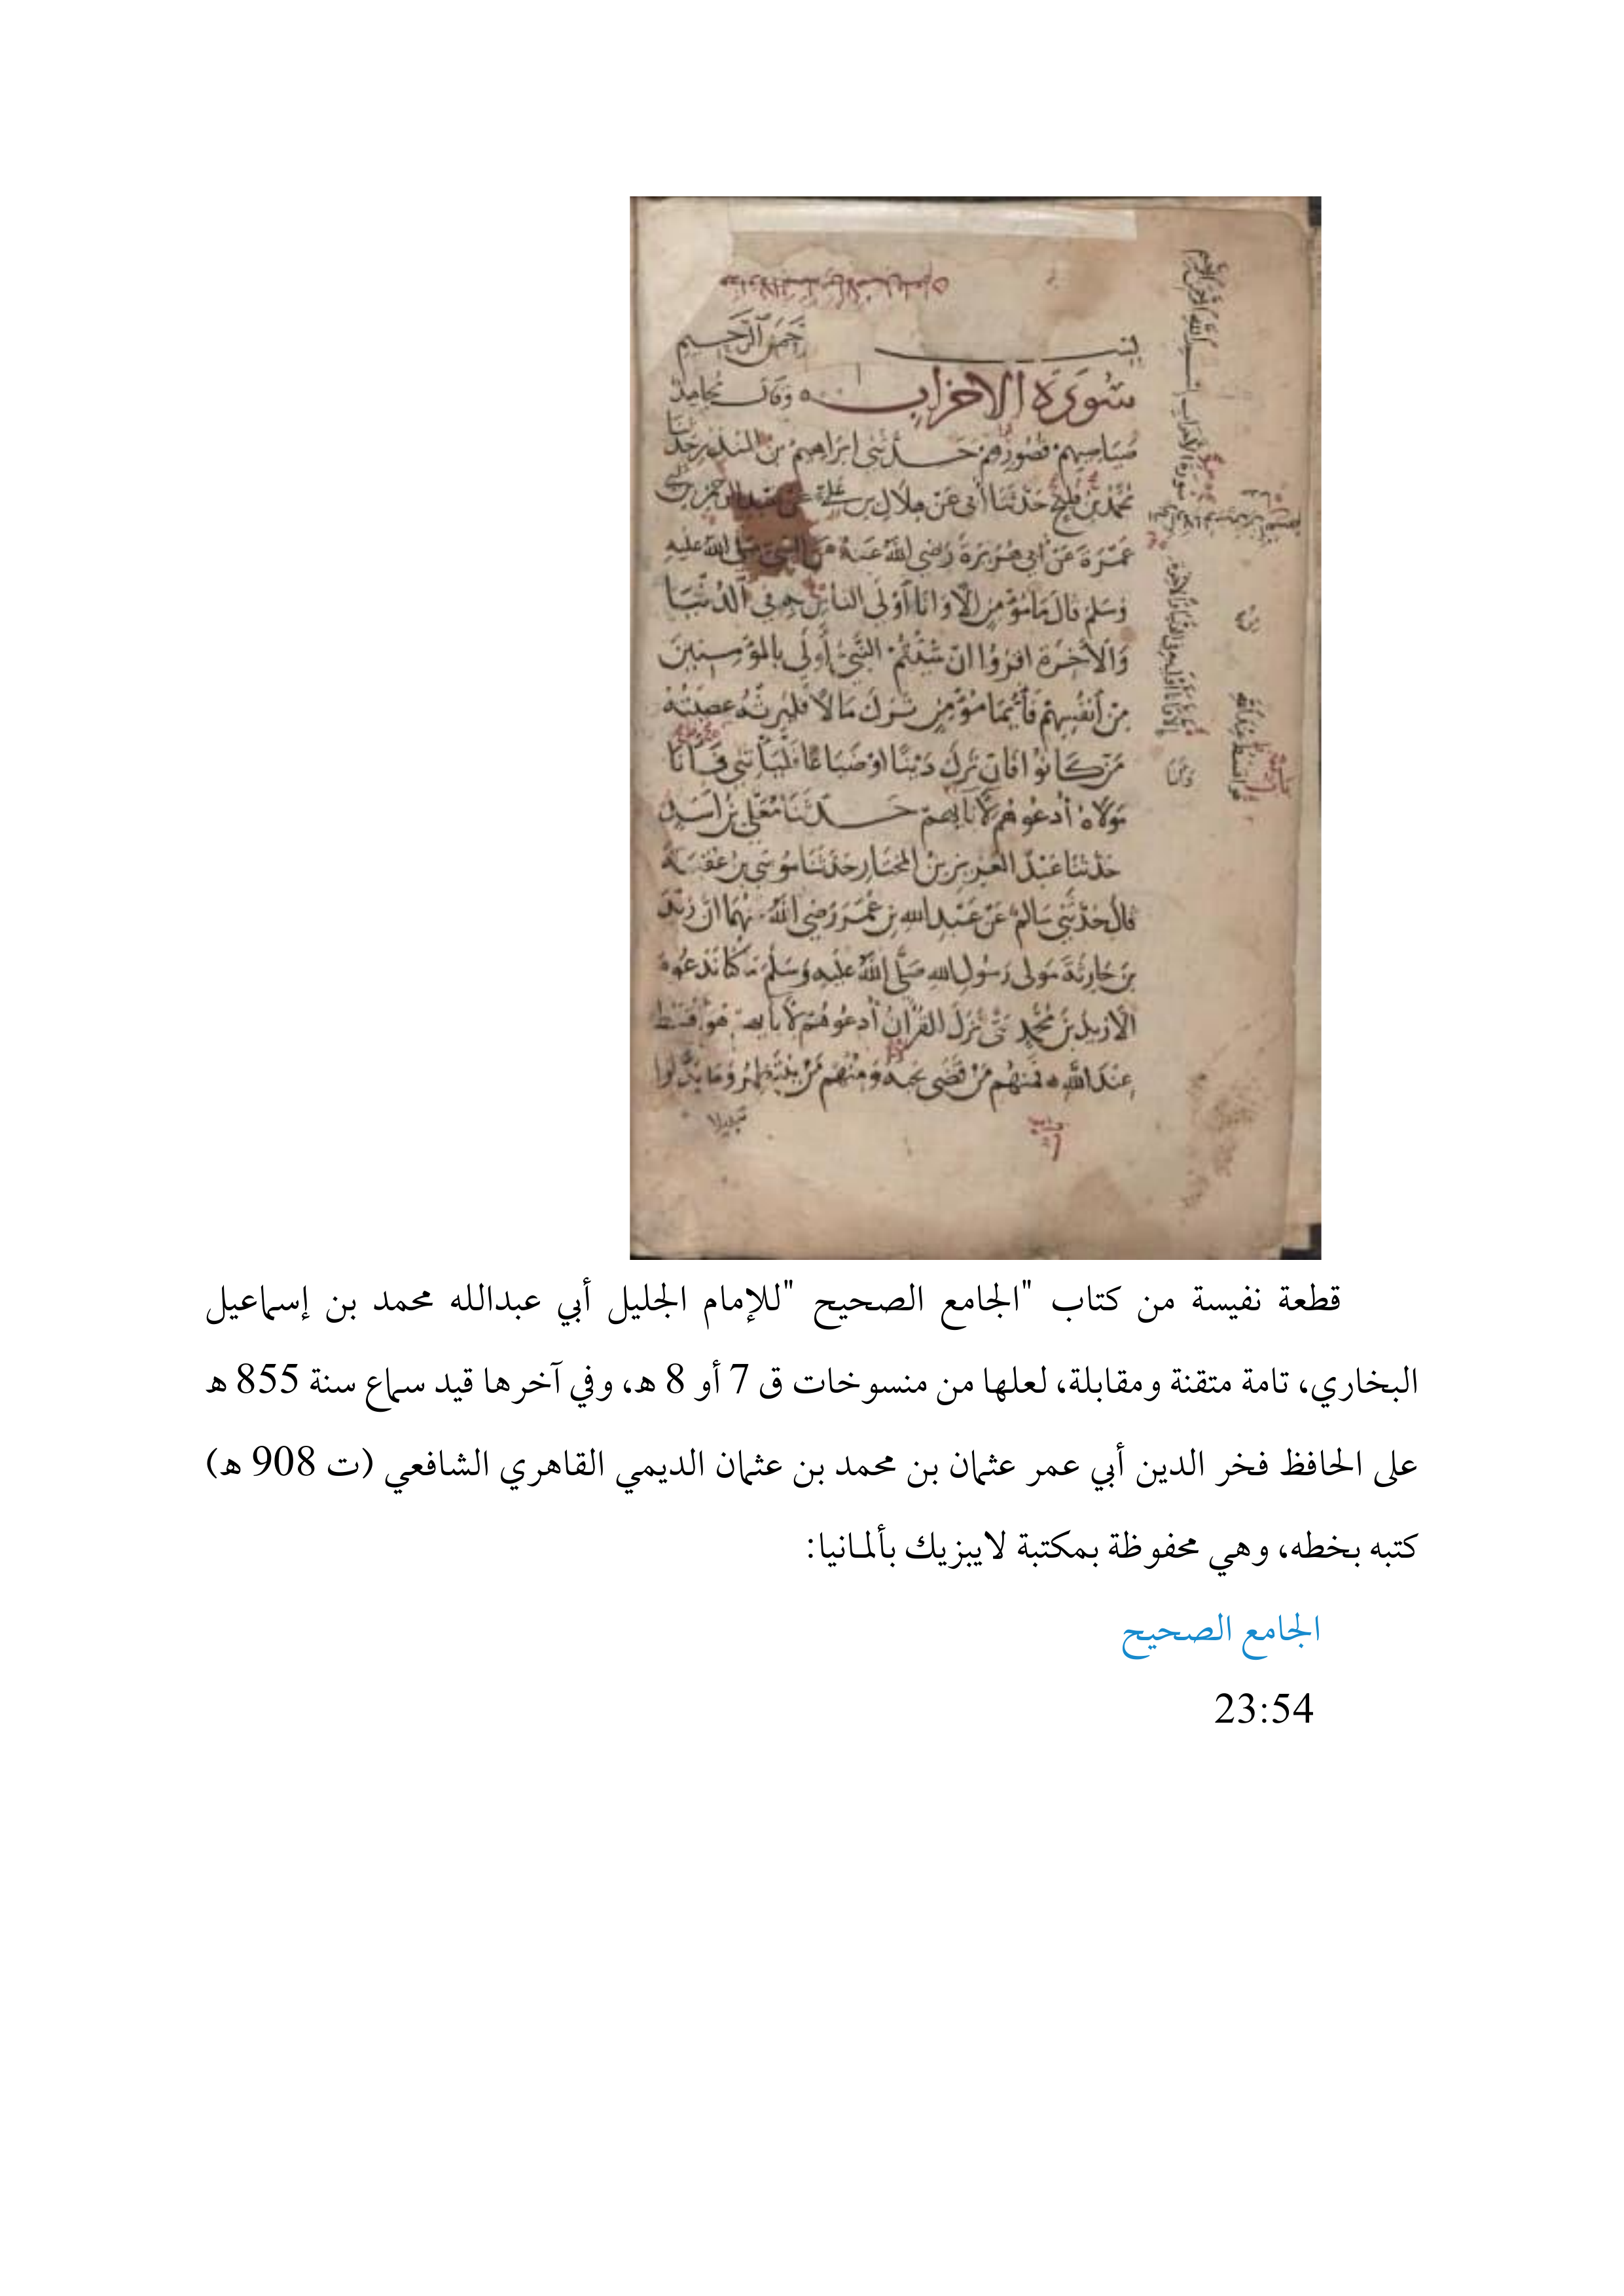 بسـ حمن الرحيم
سورة الاحزاب وقال مجاهد
صياصيهم قصورهم حدثني ابراهيم بن المنذر حدثنا
محمد بن فليح حدثنا أبي عن هلال بن علي عن عبد الرحمن بن ابي
عمرة عن أبي هريرة رضي الله عنه عن النبي صلى الله عليه
وسلم قال ما مؤمن الا وانا أولى الناس به في الدنيا
والآخرة اقرؤا ان شئتم النبي أولى بالمؤمنين
من أنفسهم فأيما مؤمن ترك مالا فليرثه عصبته
من كانوا فان ترك دينا او ضياعا فليأتني فأنا
مولاه أدعوهم لآبايهم حدثنا معلى بن اسد
حدثنا عبد العزيز بن المختار حدثنا موسى بن عقبة
قال حدثني سالم عن عبد الله بن عمر رضي الله نهما ان زيد
بن حارثة مولى رسول الله صلى الله عليه وسلم ما كنا ندعوه
الا زيد بن محمد تى نزل القرآن أدعوهم لآبايهم هو اقسط
عند الله فمنهم من قضى نحبه ومنهم من ينتظر وما بدلوا
تبديلا
قطعة نفيسة من كتاب "الجامع الصحيح "للإمام الجليل أبي عبدالله محمد بن إسماعيل
البخاري، تامة متقنة ومقابلة، لعلها من منسوخات ق 7 أو 8 هـ، وفي آخرها قيد سماع سنة 855 هـ
على الحافظ فخر الدين أبي عمر عثمان بن محمد بن عثمان الديمي القاهري الشافعي (ت 908 هـ)
كتبه بخطه، وهي محفوظة بمكتبة لايبزيك بألمانيا:
الجامع الصحيح
23:54